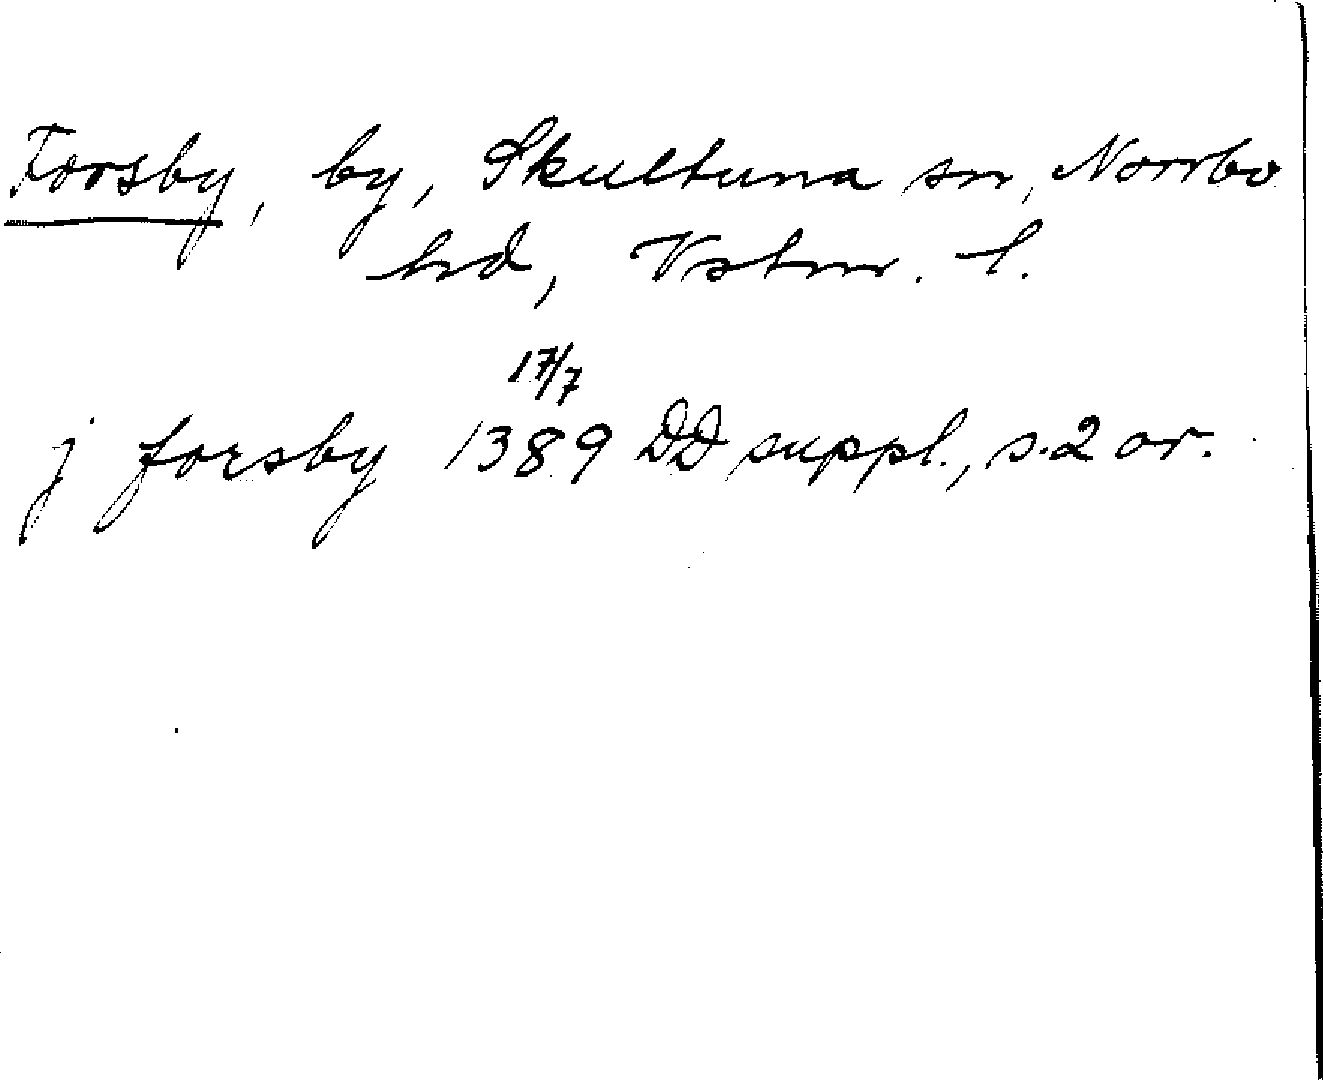 Forsby, by, Skultuna sn, Norrbo
hd, Vstm. l.
17/7
j forsby 1389 DD suppl., s. 2 or.